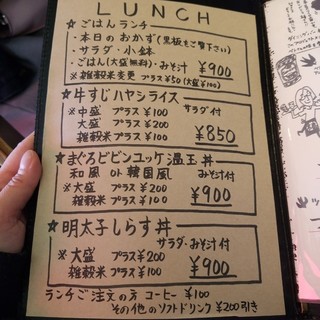 LUNCH
☆ごはんランチ
・本日のおかず(黒板もご覧下さい)
・サラダ・小鉢
・ごはん(大盛無料)・みそ汁 ¥900
※雑穀米変更 プラス¥50(大盛¥100)
★牛すじハヤシライス
※中盛 プラス¥100 サラダ付
大盛 プラス¥200
雑穀米 プラス¥100 ¥850
★まぐろビビンユッケ温玉丼
和風 or 韓国風 みそ汁付
※大盛 プラス¥200
雑穀米 プラス¥100 ¥900
★明太子しらす丼
サラダ・みそ汁付
※大盛 プラス¥200
雑穀米 プラス¥100 ¥900
ランチご注文の方 コーヒー ¥100
その他のソフトドリンク ¥200引き